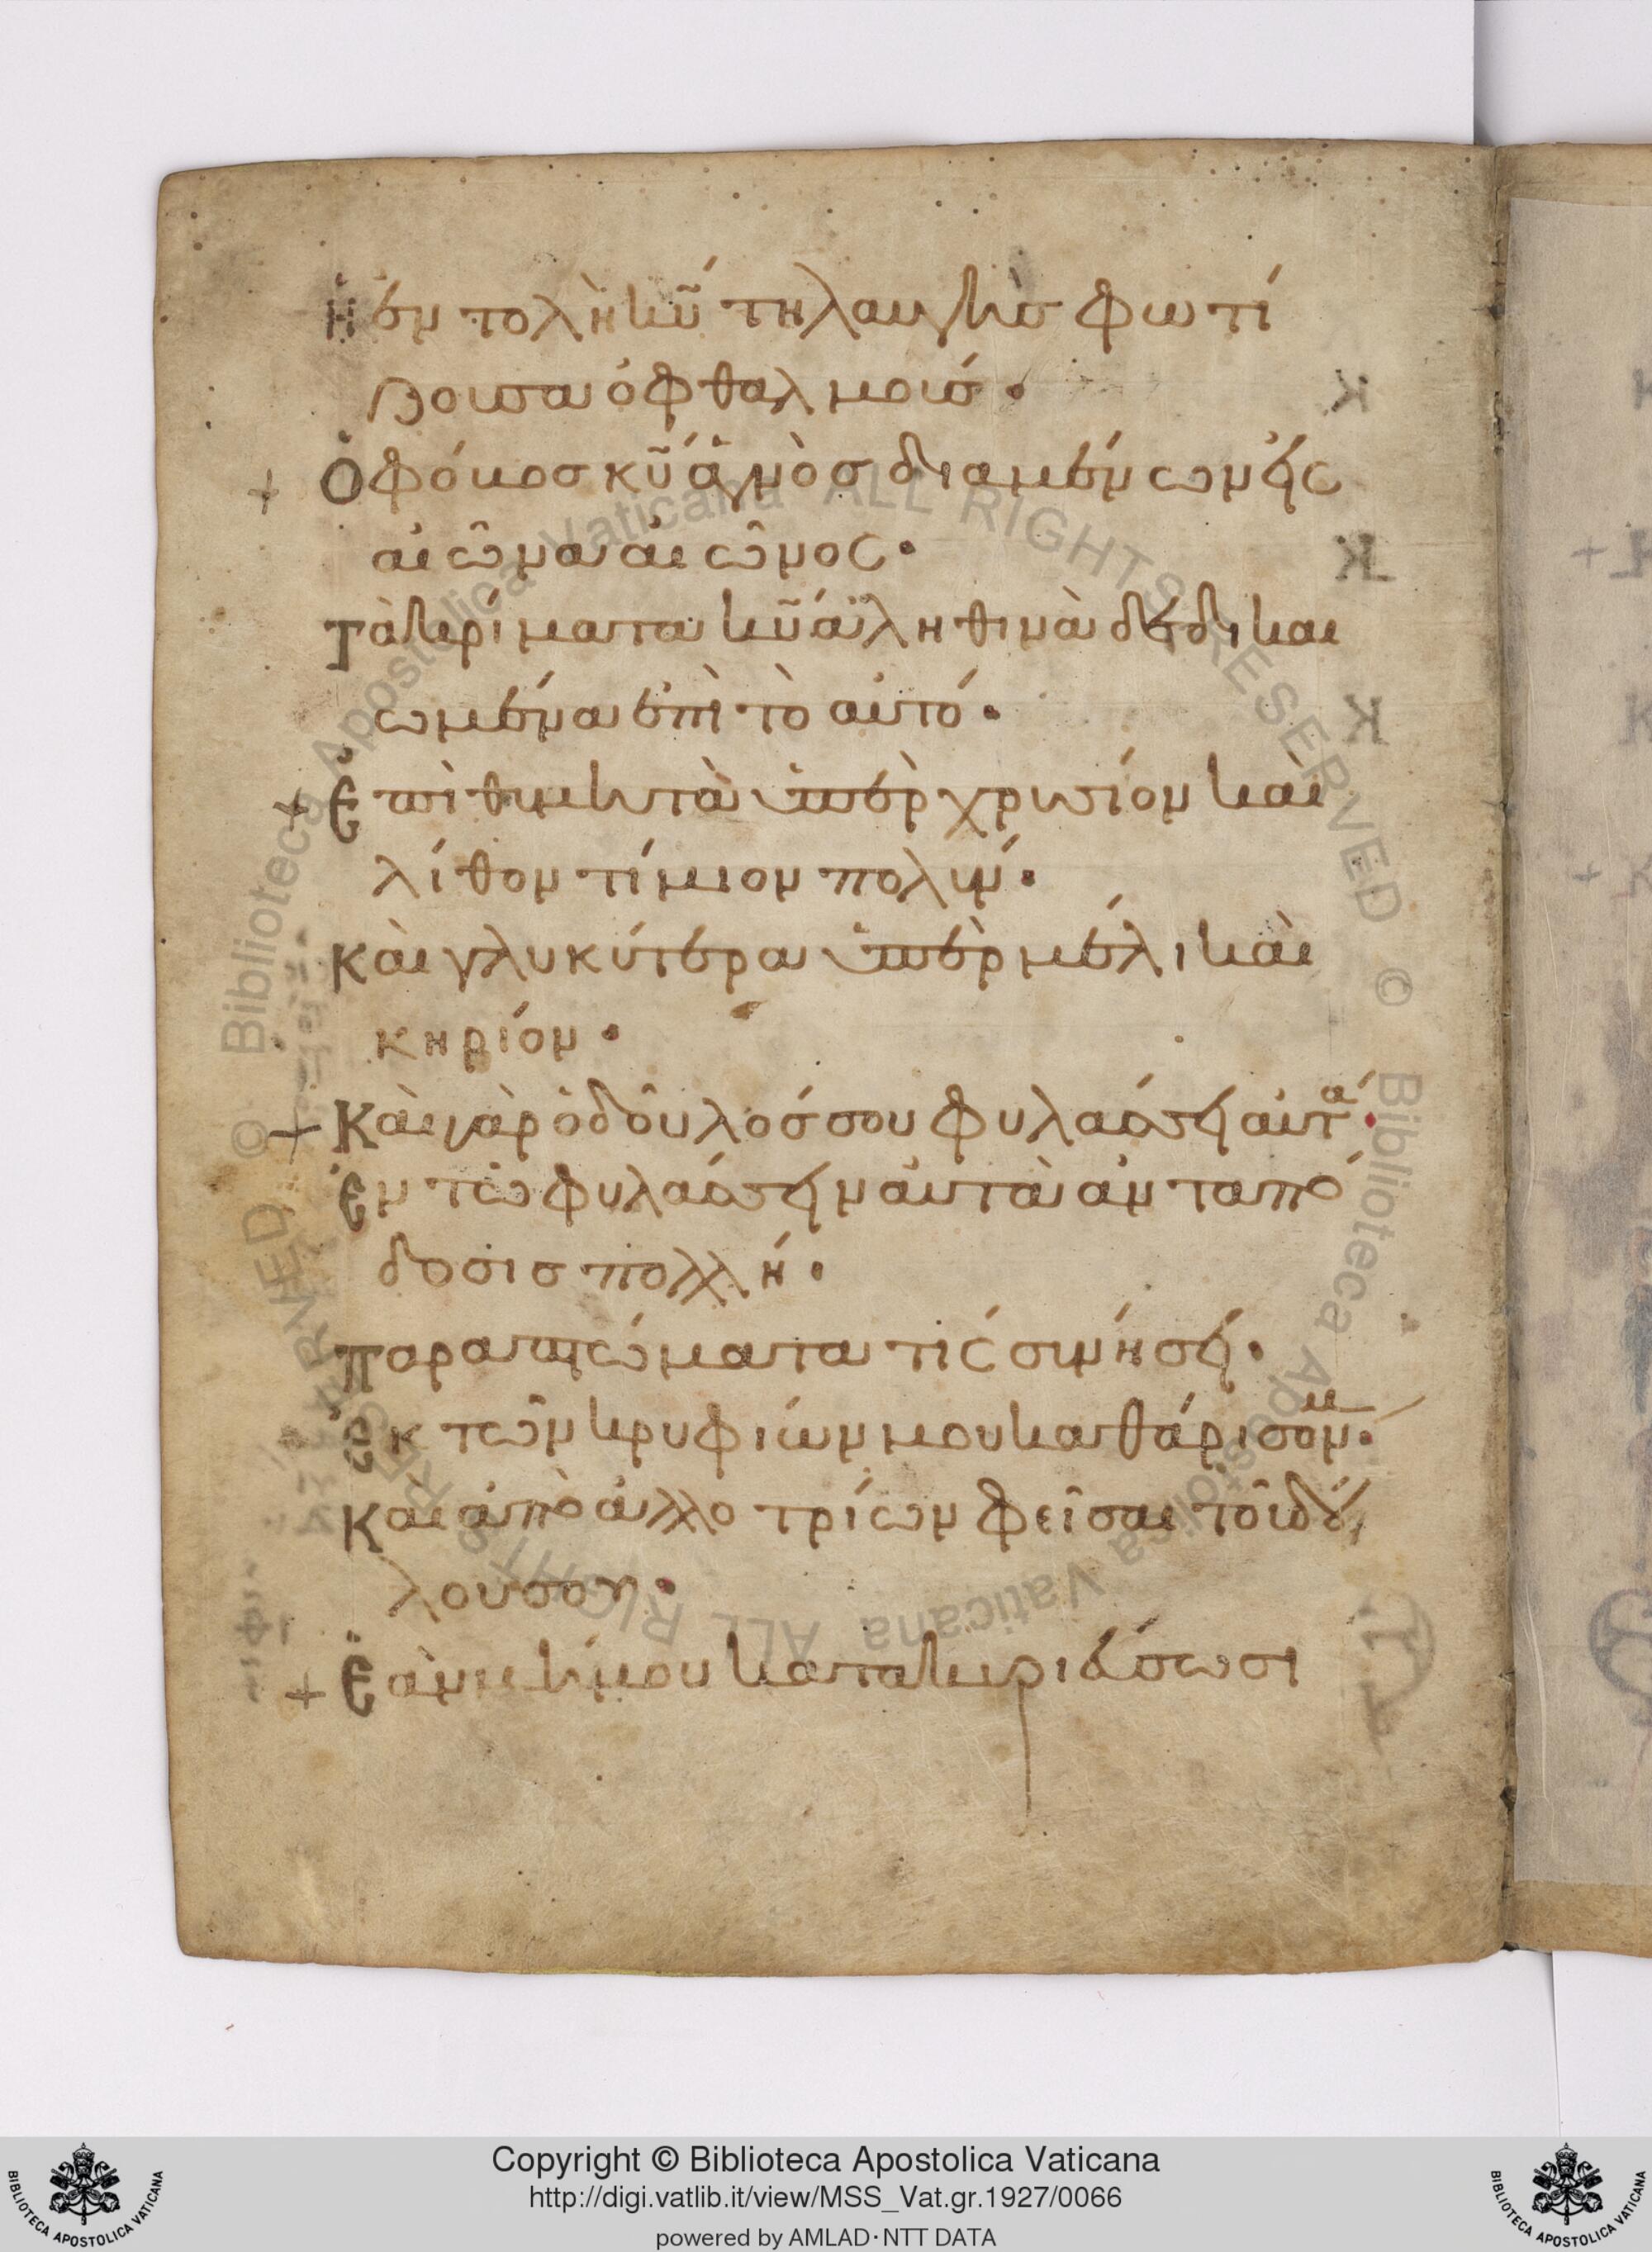 Ἡ ἐντολὴ κ̅υ̅ τηλαυγὴς φωτί
ζουσα ὀφθαλμούς·
+ Ὁ φόβος κ̅υ̅ ἁγνὸς διαμένων εἰς
αἰῶνα αἰῶνος·
Τὰ κρίματα κ̅υ̅ ἀληθινὰ δεδικαι
ωμένα ἐπὶ τὸ αὐτό·
+ Ἐπιθυμητὰ ὑπὲρ χρυσίον καὶ
λίθον τίμιον πολύν·
Καὶ γλυκύτερα ὑπὲρ μέλι καὶ
κηρίον·
+ Καὶ γὰρ ὁ δοῦλός σου φυλάσσει αὐτά·
Ἐν τῶ φυλάσσειν αὐτὰ ἀνταπό
δοσις πολλή·
Παραπτώματα τίς συνήσει·
Ἐκ τῶν κρυφίων μου καθάρισόν με·
Καὶ ἀπὸ ἀλλοτρίων φεῖσαι τοῦ δού
λου σου·
+ Ἐὰν μή μου κατακυριεύσωσι
Copyright © Biblioteca Apostolica Vaticana
http://digi.vatlib.it/view/MSS_Vat.gr.1927/0066
powered by AMLAD·NTT DATA
BIBLIOTECA APOSTOLICA VATICANA
BIBLIOTECA APOSTOLICA VATICANA
© Biblioteca Apostolica Vaticana ALL RIGHTS RESERVED © Biblioteca Apostolica Vaticana ALL RIGHTS RESERVED